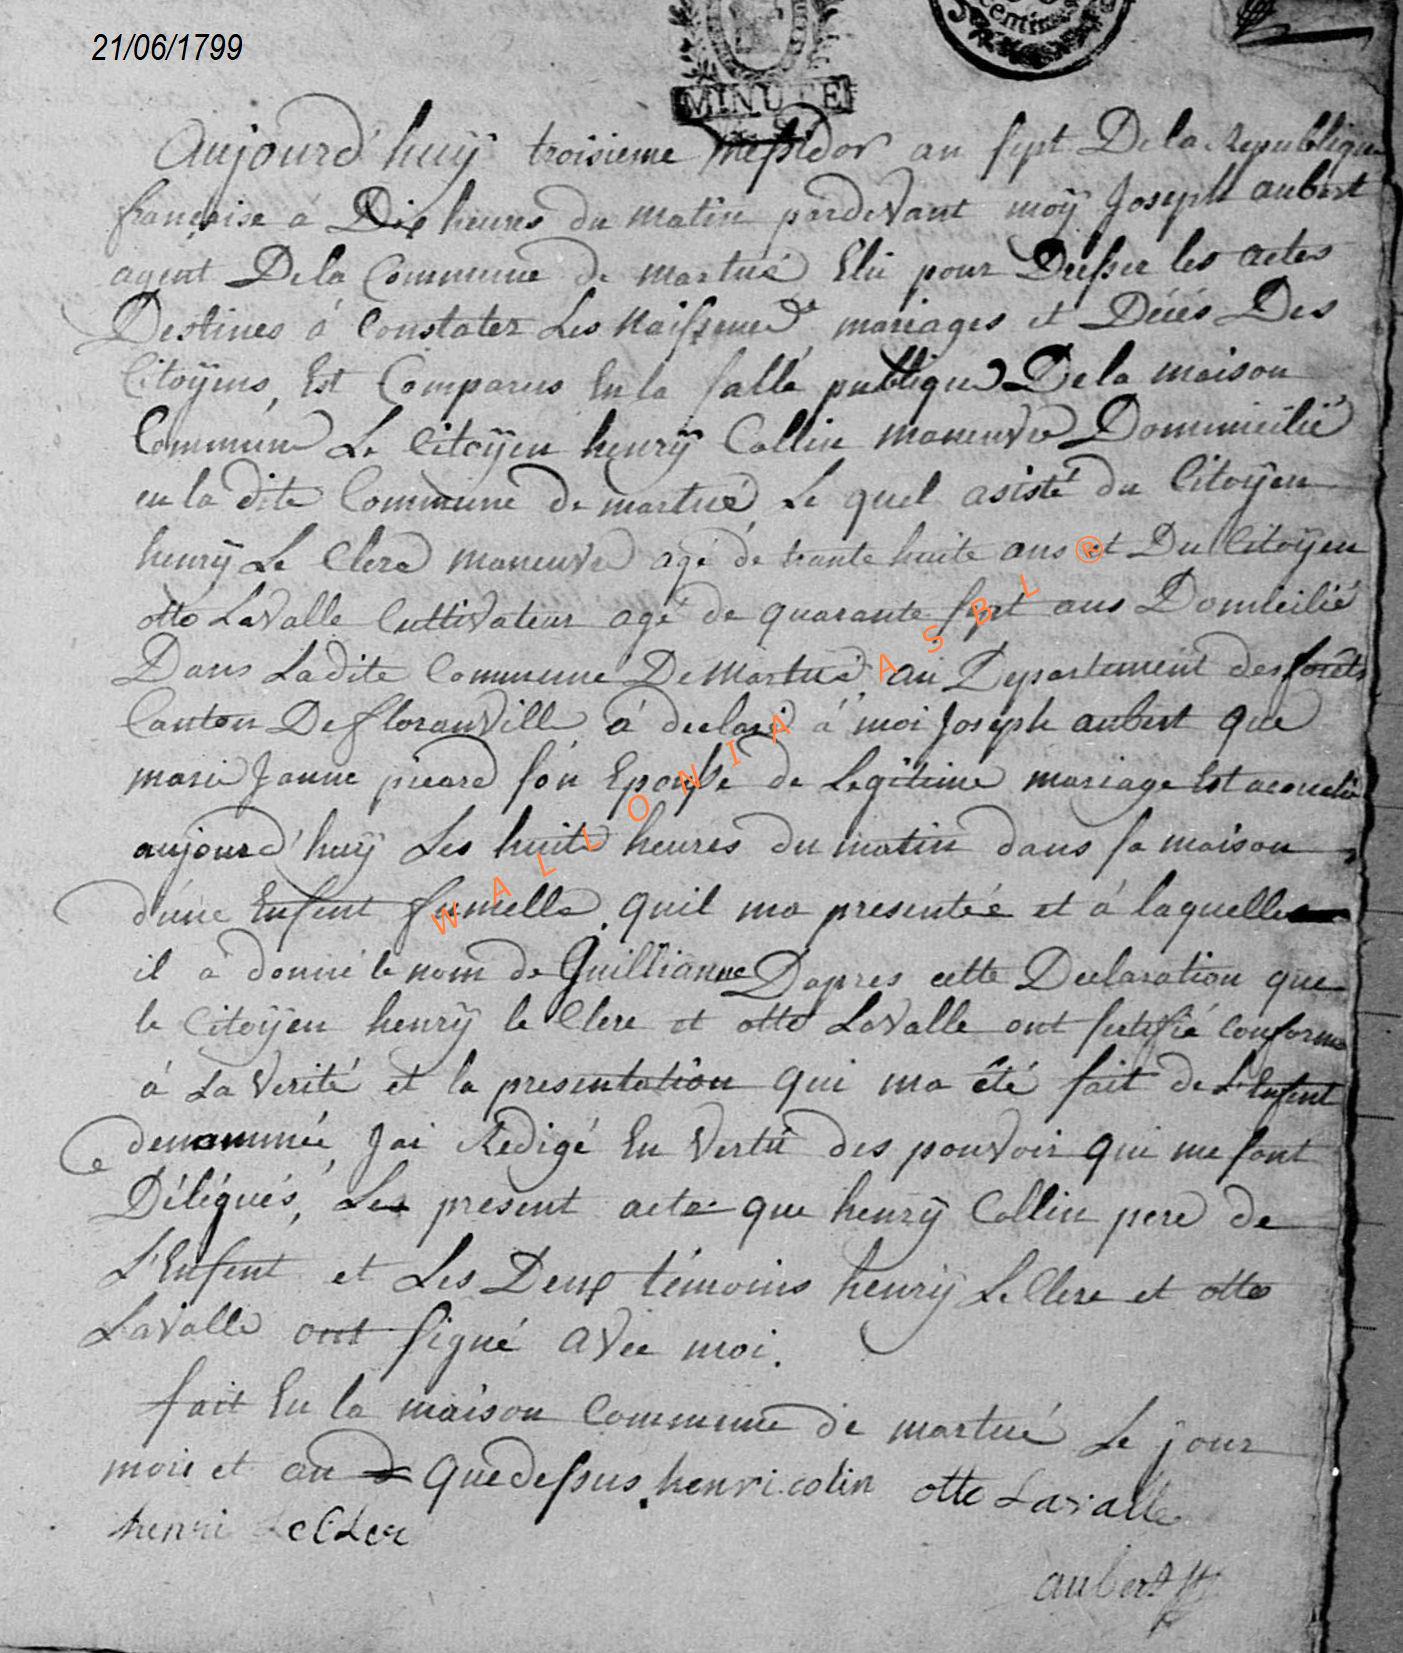 21/06/1799
MINUTE
centim
Aujourd'huÿ troisieme messidor an sept De la Republique
française a Dix heures du matin pardevant moÿ Joseph aubert
agent De la Commune de martué Elu pour Dresser les actes
Destines á Constater Les Naissences mariages et Décés Des
Citoÿens, Est Comparus En la salle publique De la maison
Commune Le Citoÿen henrÿ Collin maneuvre Dommicilié
en la dite Commune de martué, Le quel asisté du Citoÿen
henrÿ Le Clerc maneuvre agé de trante huite ans et Du Citoÿen
otto Lavalle Cultivateur agé de quarante sept ans Domicilié
Dans Ladite Commune De Martué, au Departement des forêts
Canton De floranville á declaré á moi Joseph aubert que
marie Janne picard son Epousse de Legitime mariage Est acouché
aujourd'huÿ Les huite heures du matin dans sa maison
d'une Enfent fumelle, quil ma presentée et á laquelle
il a donné le nom de Guillianne Dapres cette Declaration que
le Citoÿen henrÿ le Clerc et otto Lavalle ont sertifié conforme
á La Verité et la presentation qui ma êté fait de L'Enfent
denommée, Jai Redigé En Vertû des pouvoir qui me sont
Délégués, Le present acte que henrÿ Collin pere de
L'Enfent et Les Deux témoins henrÿ Le Clerc et otto
Lavalle ont signé avec moi.
fait En la maison Commune de martué Le jour
mois et an que dessus. henri colin otto Lavalle
henri LeCLer
aubert
WALLONIA ASBL ®